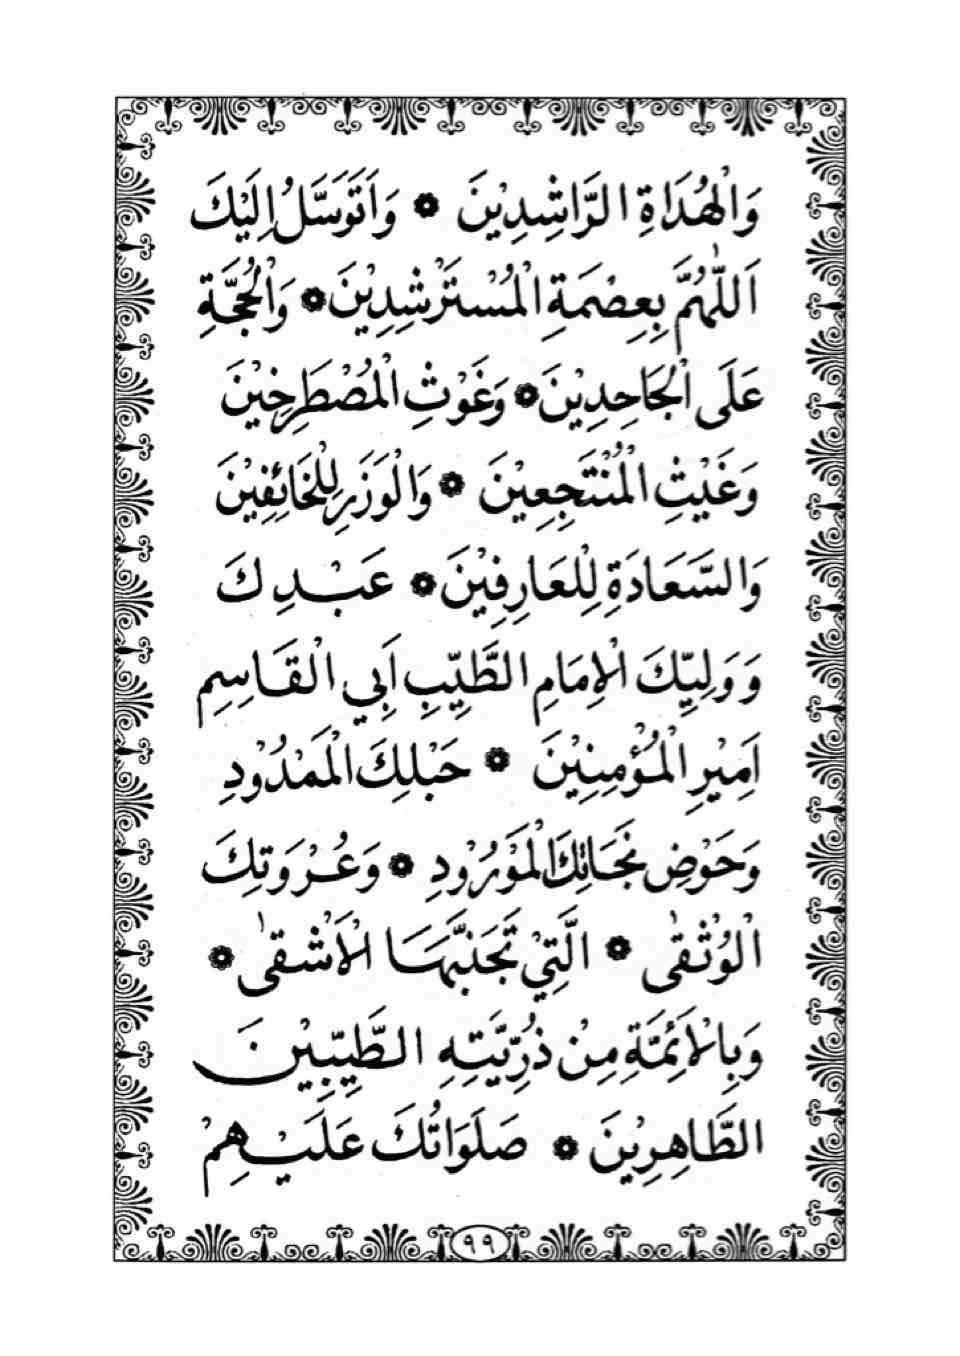 وَالْهُدَاةِ الرَّاشِدِيْنَ ❁ وَاَتَوَسَّلُ اِلَيْكَ
اَللّٰهُمَّ بِعِصْمَةِ الْمُسْتَرْشِدِيْنَ ❁ وَالْحُجَّةِ
عَلَى الْجَاحِدِيْنَ ❁ وَغَوْثِ الْمُصْطَرِخِيْنَ
وَغَيْثِ الْمُنْتَجِعِيْنَ ❁ وَالْوَزَرِ لِلْخَائِفِيْنَ
وَالسَّعَادَةِ لِلْعَارِفِيْنَ ❁ عَبْدِكَ
وَوَلِيِّكَ الْاِمَامِ الطَّيِّبِ اَبِي الْقَاسِمِ
اَمِيْرِ الْمُؤْمِنِيْنَ ❁ حَبْلِكَ الْمَمْدُوْدِ
وَحَوْضِ نَجَاتِكَ الْمَوْرُوْدِ ❁ وَعُرْوَتِكَ
الْوُثْقٰى ❁ الَّتِيْ تَجَنَّبَهَا الْاَشْقٰى ❁
وَبِالْاَئِمَّةِ مِنْ ذُرِّيَّتِهِ الطَّيِّبِيْنَ
الطَّاهِرِيْنَ ❁ صَلَوَاتُكَ عَلَيْهِمْ
٩٩